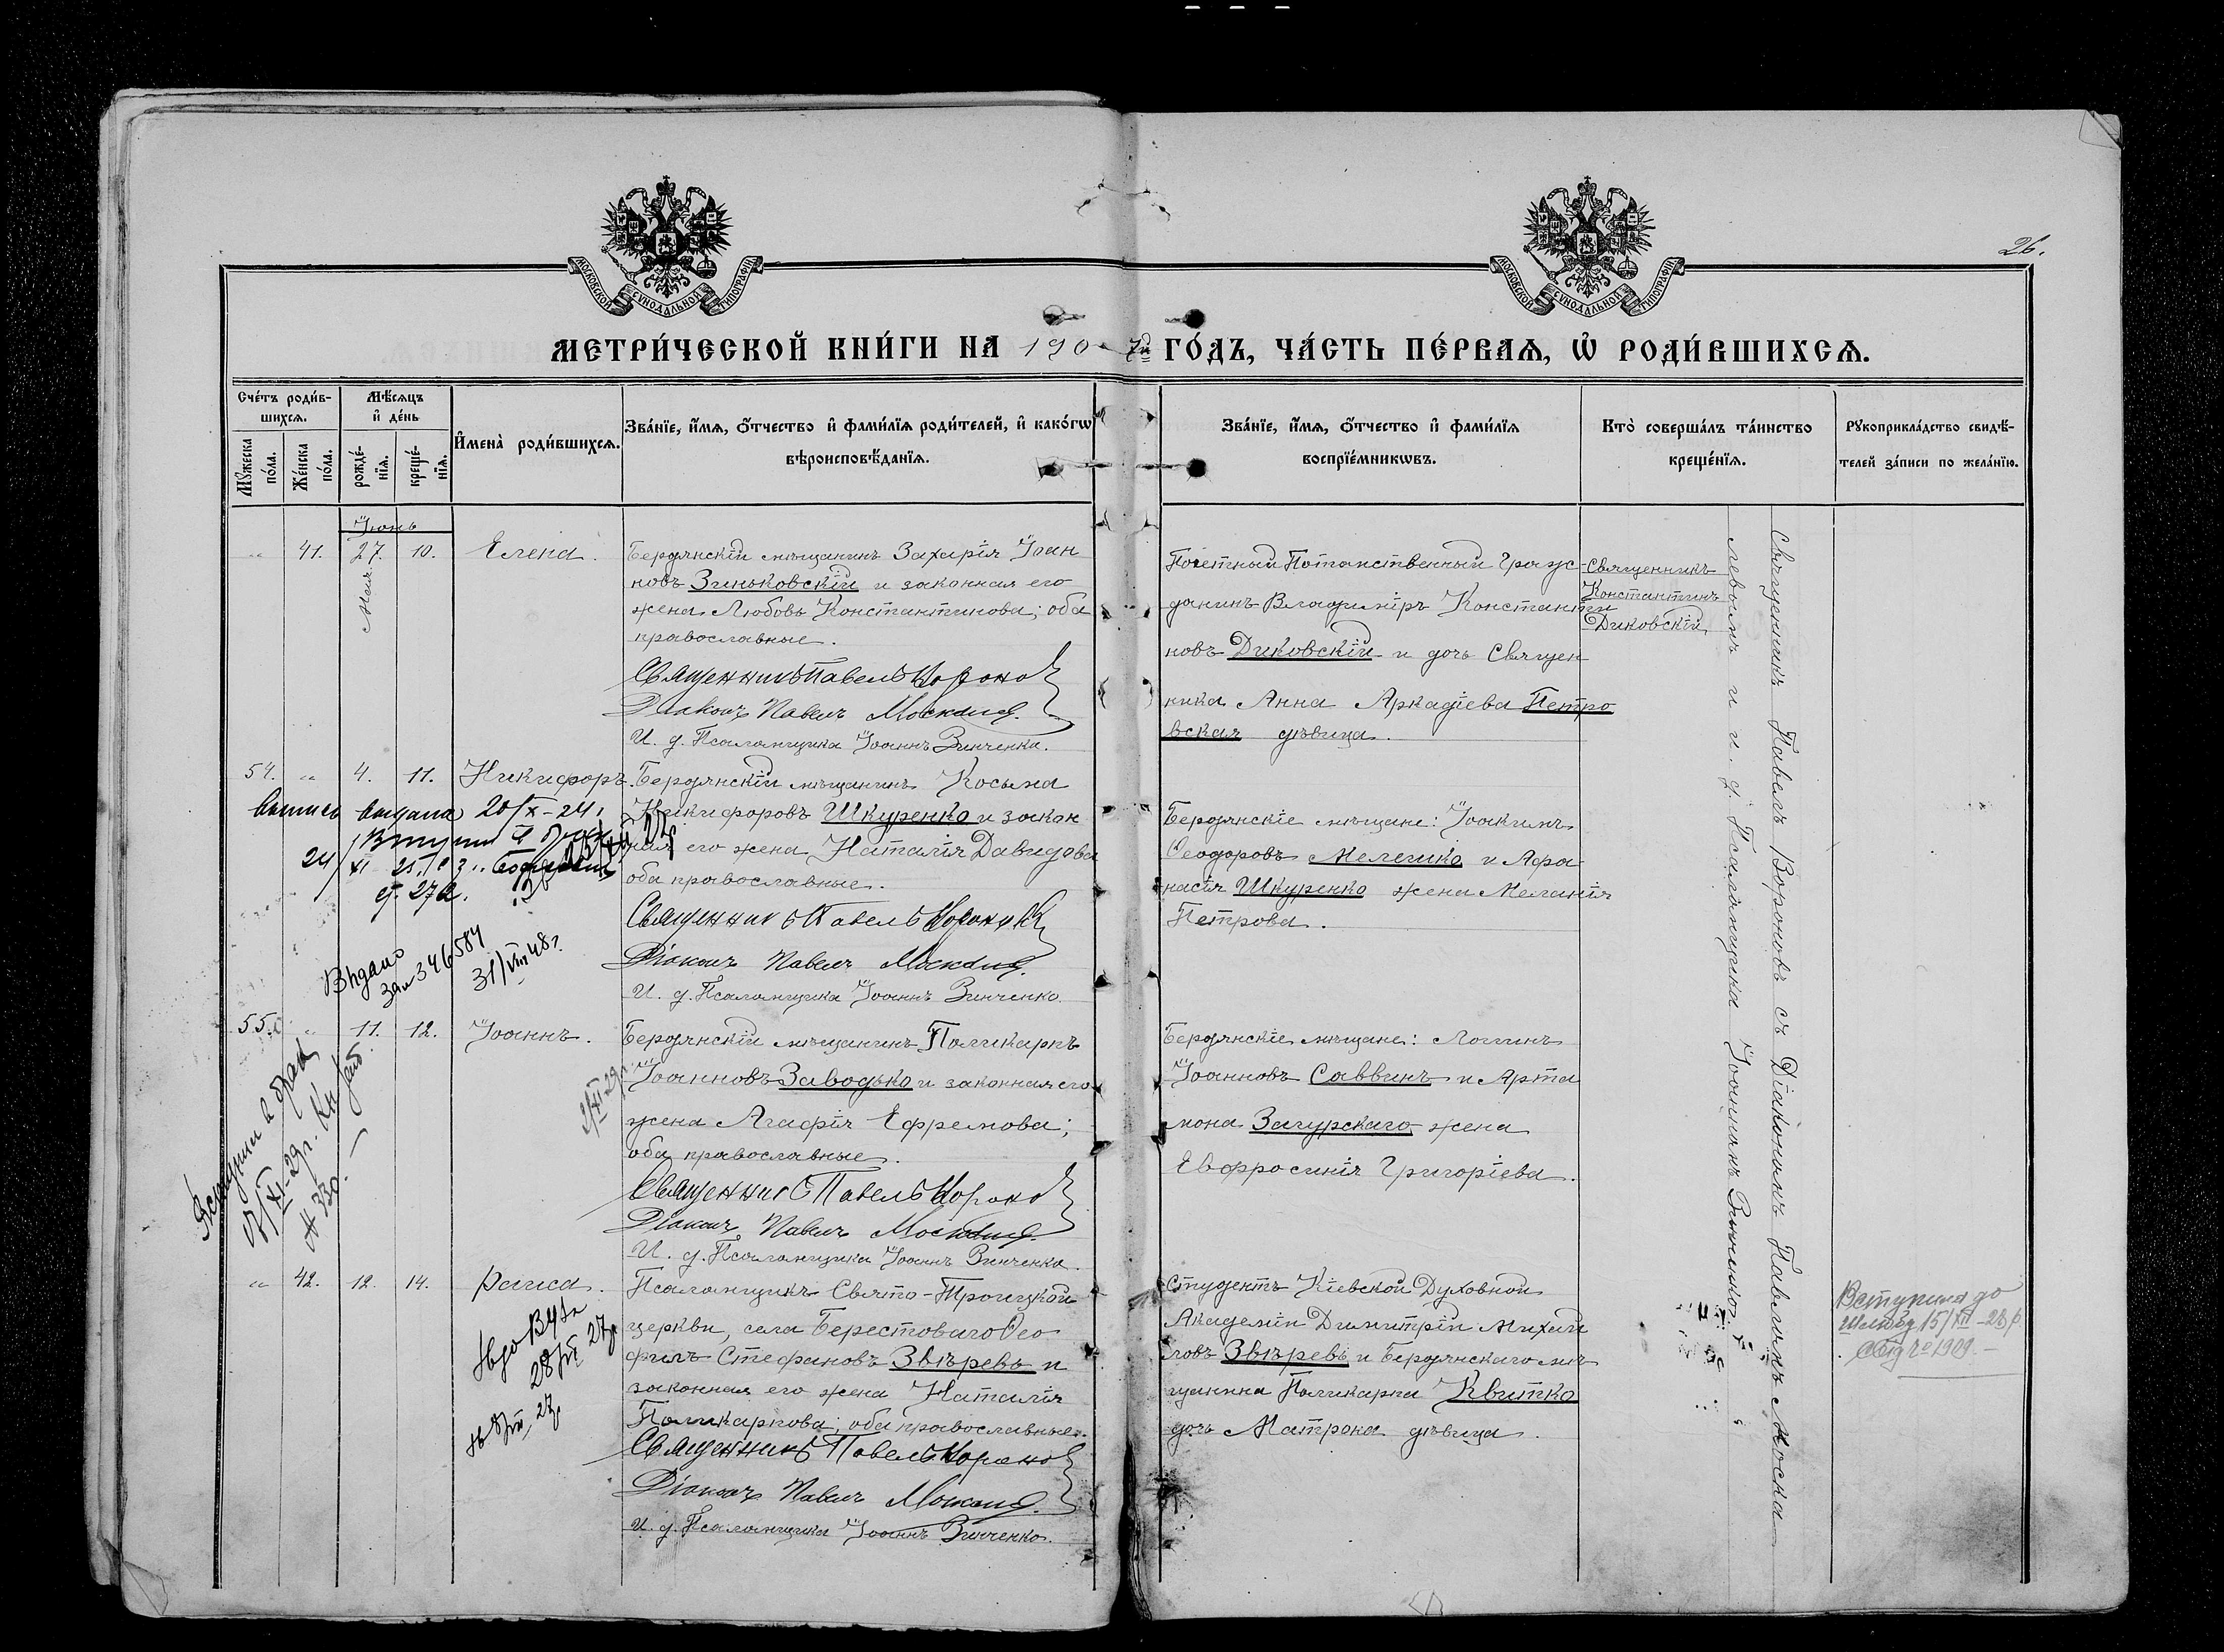 26.
МОСКОВСКОЙ СѴНОДАЛЬНОЙ ТИПОГРАФІИ
МОСКОВСКОЙ СѴНОДАЛЬНОЙ ТИПОГРАФІИ
МЕТРИ́ЧЕСКОЙ КНИ́ГИ НА 1907й ГО́ДЪ, ЧА́СТЬ ПЕ́РВАЯ, Ѽ РОДИ́ВШИХСЯ.
Сче́тъ роди́в-
шихся.
Мꙋжеска по́ла.
Же́нска по́ла.
Мѣ́сяцъ
и҆ де́нь
рожде́-
нїя.
креще́-
нїя.
И҆мена̀ роди́вшихся.
Зва́нїе, и҆́мя, ѻ҆́тчество и҆ фами́лїя роди́телей, и҆ како́гѡ
вѣроисповѣ́данїя.
Зва́нїе, и҆́мя, ѻ҆́тчество и҆ фами́лїя
воспрїе́мникѡвъ.
Кто̀ соверша́лъ та́инство
креще́нїя.
Рꙋкоприкла́дство свидѣ́-
телей за́писи по жела́нїю.
Іюнь
„ 41. 27. 10. Елена.
Мая
Бердянскій мѣщанинъ Захарія Іоан
новъ Зиньковскій и законная его
жена Любовь Константинова; оба
православные.
Священникъ Павелъ Вороновъ
Діаконъ Павелъ Москалев.
И. д. Псаломщика Іоаннъ Зинченко.
Почетный Потомственный Граж-
данинъ Владиміръ Константи
новъ Диковскій и дочь Священ
ника Анна Аркадіева Петро
вская дѣвица.
Священникъ
Константинъ
Диковскій
Священникъ Павелъ Вороновъ съ Діакономъ Павломъ Моска
левымъ и и. д. Псаломщика Іоанномъ Зинченко
54. „ 4. 11. Никифоръ.
Бердянскій мѣщанинъ Косьма
Никифоровъ Шкуренко и закон
ная его жена Наталія Давидова
оба православные.
Священникъ Павелъ Вороновъ
Діаконъ Павелъ Москалев.
И. д. Псаломщика Іоаннъ Зинченко.
выдана 20/X-24 г
Видано
за № 346584
31/VIII 48 г.
Бердянскіе мѣщане: Іоакимъ
Ѳеодоровъ Мелешко и Афа
насія Шкуренко жена Меланія
Петрова.
55. „ 11. 12. Іоаннъ.
Бердянскій мѣщанинъ Поликарпъ
Іоанновъ Заводько и законная его
жена Агафія Ефремова;
оба православные.
Священникъ Павелъ Вороновъ
Діаконъ Павелъ Москалев.
И. д. Псаломщика Іоаннъ Зинченко.
№ 330.
Бердянскіе мѣщане: Логинъ
Іоанновъ Саввинъ и Арта
мона Загурскаго жена
Евфросинія Григоріева.
„ 42. 12. 14. Раиса.
Псаломщикъ Свято-Троицкой
церкви, села Берестоваго Ѳео
филъ Стефановъ Звѣревъ и
законная его жена Наталія
Поликарпова; оба православные.
Священникъ Павелъ Вороновъ
Діаконъ Павелъ Москалев.
И. д. Псаломщика Іоаннъ Зинченко.
Студентъ Кіевской Духовной
Академіи Димитрій Михаи
ловъ Звѣревъ и Бердянскаго мѣ
щанина Поликарпа Квитко
дочь Матрона дѣвица.
Вступила до
шлюбу 15/XII-28 р.